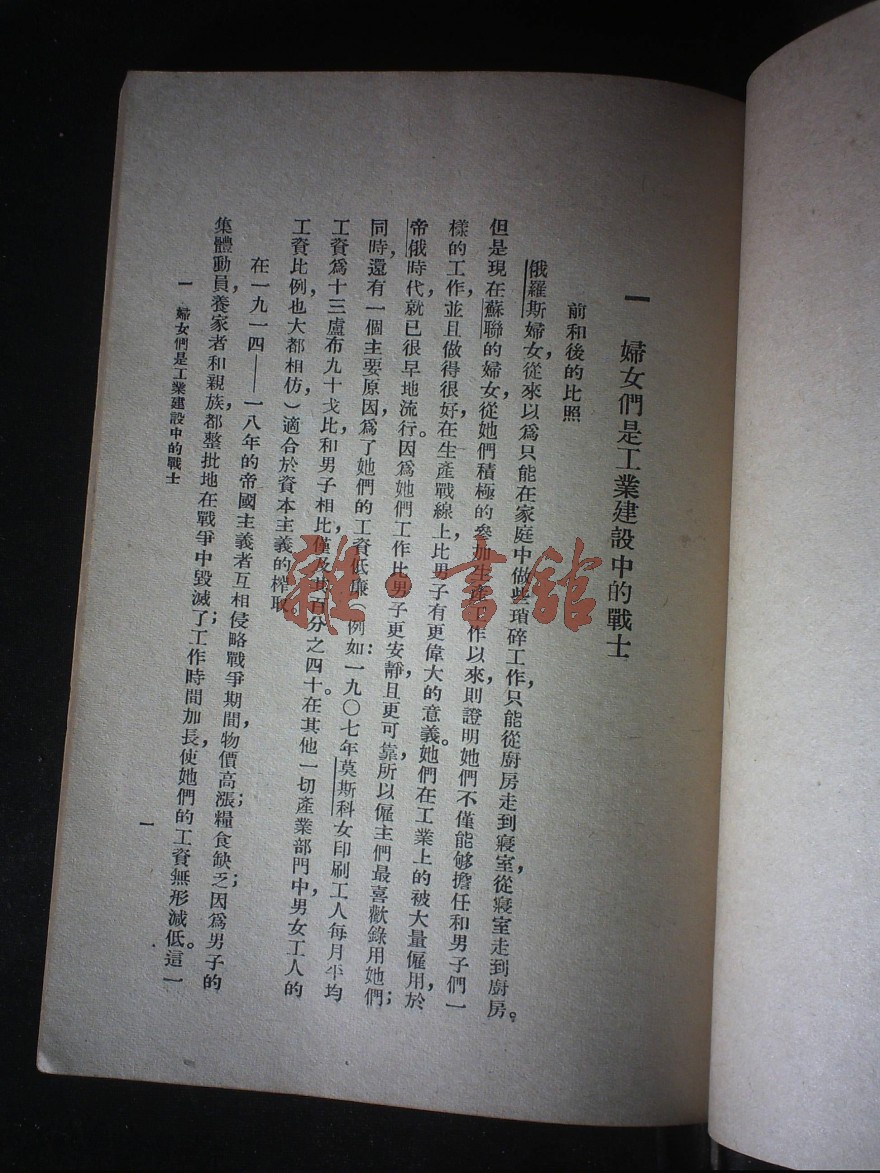 一　婦女們是工業建設中的戰士
前和後的比照
俄羅斯婦女從來以爲只能在家庭中做些瑣碎工作，只能從廚房走到寢室，從寢室走到廚房。
但是現在蘇聯的婦女從她們積極的參加生產工作以來，則證明她們不僅能够擔任和男子們一
樣的工作，並且做得很好，在生產戰線上比男子有更偉大的意義。她們在工業上的被大量僱用，於
帝俄時代就已很早地流行。因爲她們工作比男子更安靜，且更可靠，所以僱主們最喜歡錄用她們；
同時，還有一個主要原因，爲了她們的工資低廉（例如：一九〇七年莫斯科女印刷工人每月平均
工資爲十三盧布九十戈比，和男子相比，僅及其百分之四十。在其他一切產業部門中，男女工人的
工資比例，也大都相仿）適合於資本主義的榨取。
在一九一四——一八年的帝國主義者互相侵略戰爭期間，物價高漲；糧食缺乏；因爲男子的
集體動員，養家者和親族都整批地在戰爭中毀滅了；工作時間加長，使她們的工資無形減低。這一
一　婦女們是工業建設中的戰士
一
雜·書館